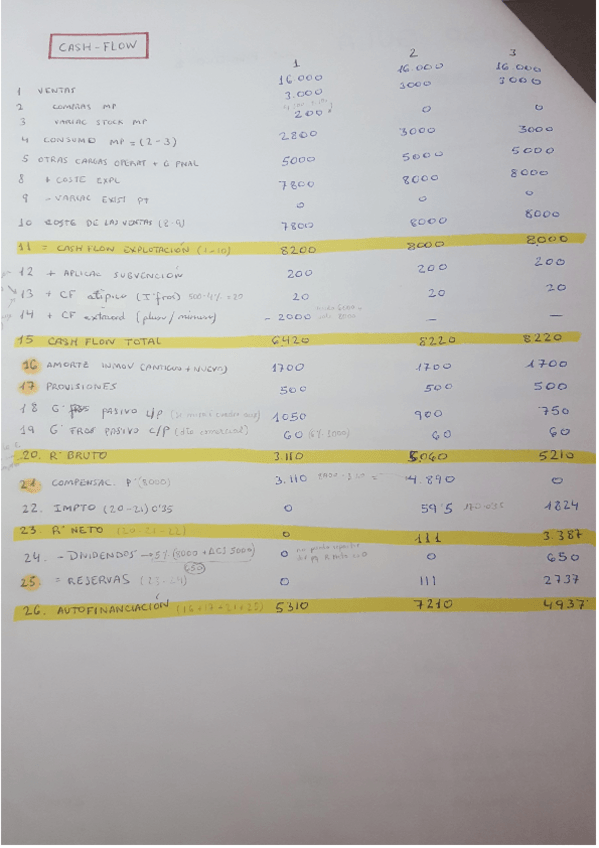 CASH-FLOW
1 2 3
1 VENTAS 16.000 16.000 16.000
2 COMPRAS MP 3.000 3000 3000
3 VARIAC STOCK MP 200 0 0
4 CONSUMO MP = (2-3) 2800 3000 3000
5 OTRAS CARGAS OPERAT + G PNAL 5000 5000 5000
8 + COSTE EXPL 7800 8000 8000
9 - VARIAC EXIST PT 0 0 0
10 COSTE DE LAS VENTAS (8-9) 7800 8000 8000
11 = CASH FLOW EXPLOTACIÓN (1-10) 8200 8000 8000
12 + APLICAC SUBVENCIÓN 200 200 200
13 + CF atípico (I' fros) 500·4% = 20 20 20 20
14 + CF extraord (plusv/minusv) - 2000 — —
15 CASH FLOW TOTAL 6420 8220 8220
16 AMORTZ INMOV (ANTIGUO + NUEVO) 1700 1700 1700
17 PROVISIONES 500 500 500
18 G' FROS PASIVO L/P 1050 900 750
19 G' FROS PASIVO C/P (dto comercial) 60 (6% 1000) 60 60
20. Rº BRUTO 3.110 5.060 5210
21 COMPENSAC. Pº (8000) 3.110 8000-3110= 4.890 0
22. IMPTO (20-21) 0'35 0 59'5 170·0'35 1824
23 Rº NETO (20-21-22) 0 111 3.387
24. - DIVIDENDOS → 5% (8000 + ΔCS 5000) 0 0 650
650
25. = RESERVAS (23-24) 0 111 2737
26. AUTOFINANCIACIÓN (16+17+21+25) 5310 7210 4937